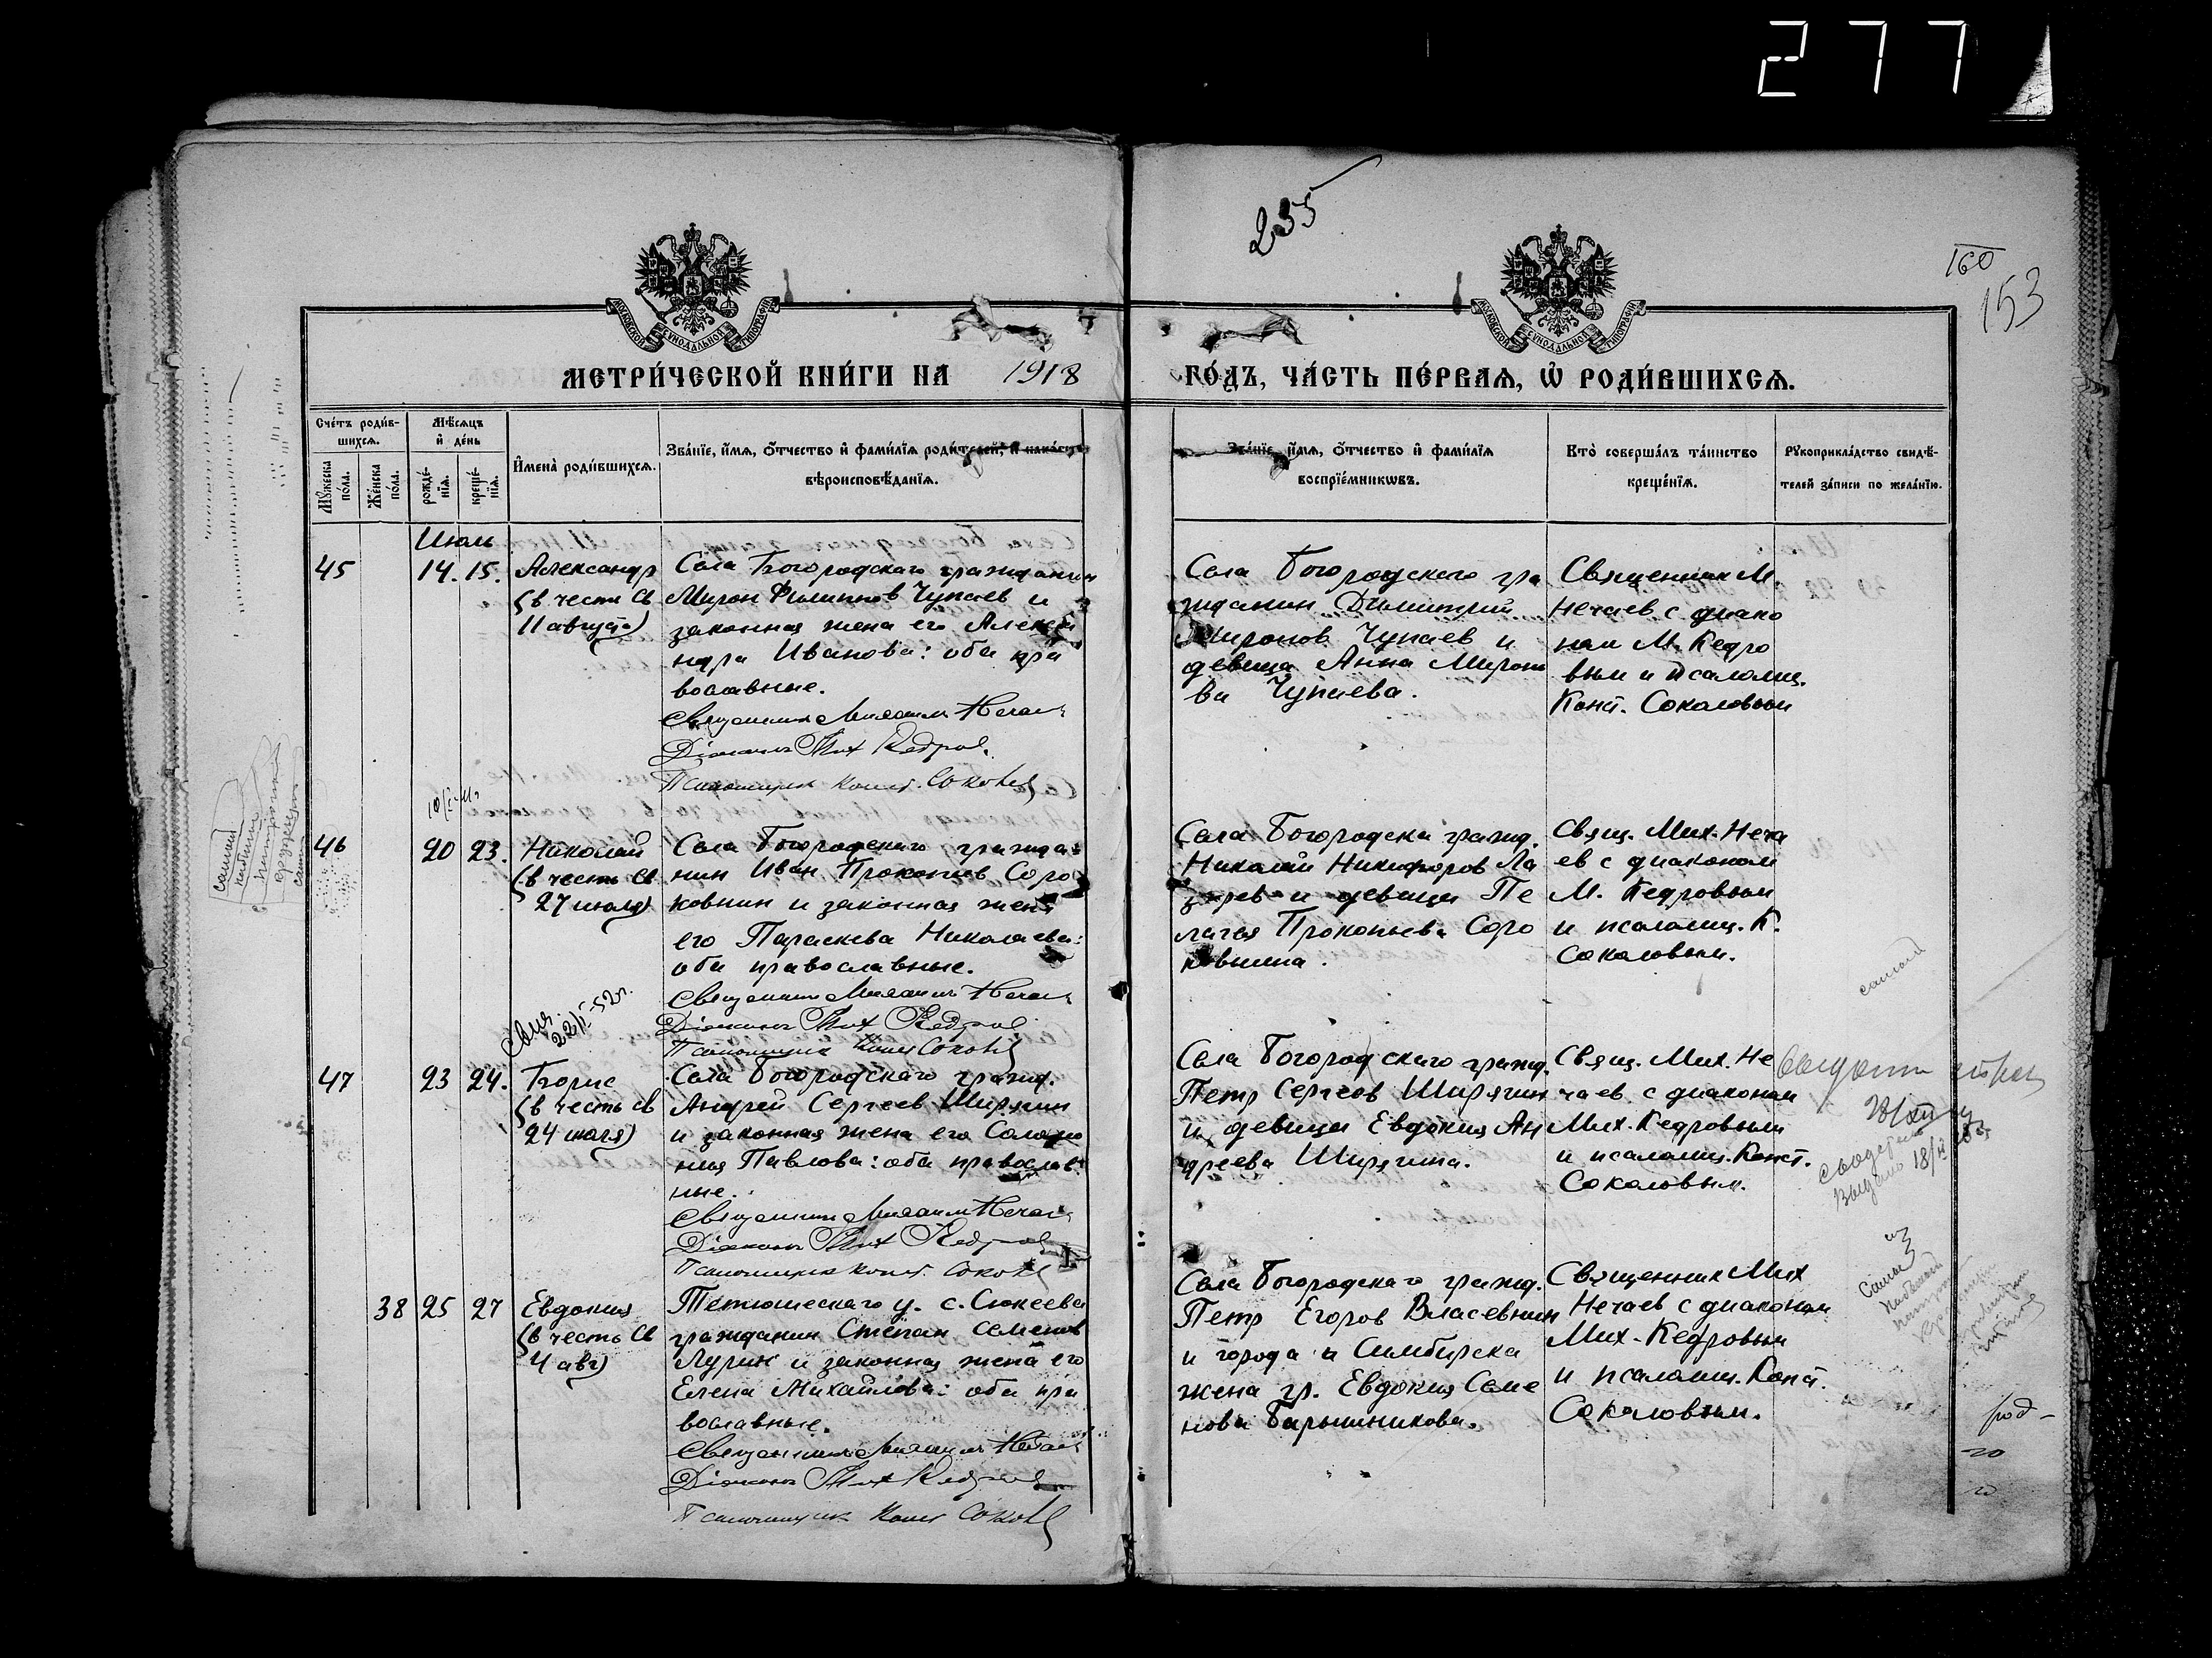 277
235
160
153
МОСКОВСКОЙ СѴНОДАЛЬНОЙ ТИПОГРАФІИ
МОСКОВСКОЙ СѴНОДАЛЬНОЙ ТИПОГРАФІИ
МЕТРИ́ЧЕСКОЙ КНИ́ГИ НА 1918 ГО́ДЪ, ЧА́СТЬ ПЕ́РВАЯ, Ѡ҆ РОДИ́ВШИХСЯ.
Сче́тъ роди́в-
шихся.
Мꙋ́жеска
по́ла.
Же́нска
по́ла.
Мѣ́сяцъ
и҆ де́нь
рожде́-
нїя.
креще́-
нїя.
И҆мена̀ роди́вшихся.
Зва́нїе, и҆́мя, ѻ҆́тчество и҆ фами́лїя роди́телей, и҆ како́гѡ
вѣроисповѣ́данїя.
Зва́нїе, и҆́мя, ѻ҆́тчество и҆ фами́лїя
воспрїе́мникѡвъ.
Кто̀ соверша́лъ та́инство
креще́нїя.
Рꙋкоприкла́дство свидѣ́-
телей за́писи по жела́нїю.
Июль
45 14. 15. Александр
(в честь св
11 августа)
Села Богородскаго гражданин
Мирон Филиппов Чупаев и
законная жена его Алекса
ндра Иванова: оба пра
вославные.
Священник Михаил Нечаев
Діаконъ Мих Кедров.
Псаломщик Конст. Соколов
Села Богородскаго гра
жданин Димитрий
Миронов Чупаев и
девица Анна Мироно
ва Чупаева.
Священник М.
Нечаев с диако
ном М. Кедро
вым и псаломщ.
Конст. Соколовым
46 20 23. Николай
(в честь св
27 июля)
Села Богородскаго гражда-
нин Иван Прокопьев Соро
ковнин и законная жена
его Параскева Николаева:
оба православные.
Священник Михаил Нечаев
Діаконъ Мих Кедров
Псаломщик Конст Соколов
Села Богородска гражд.
Николай Никифоров Ла
зарев и девица Пе
лагея Прокопьева Соро
ковнина.
Свящ. Мих. Неча
ев с диаконом
М. Кедровым
и псаломщ. К.
Соколовым.
47 23 24. Борис
(в честь св
24 июля)
Села Богородскаго гражд.
Андрей Сергеев Ширягин
и законная жена его Соломо
ния Павлова: оба православ-
ные.
Священник Михаил Нечаев
Діаконъ Мих Кедров
Псаломщик Конст. Соколов
Села Богородскаго гражд.
Петр Сергеев Ширягин
и девица Евдокия Ан
дреева Ширягина.
Свящ. Мих. Не
чаев с диаконом
Мих. Кедровым
и псаломщ. Конст.
Соколовым.
38 25 27 Евдокия
(в честь св
4 авг)
Тетюшескаго у. с. Сюкеева
гражданин Степан Семенов
Лурин и законная жена его
Елена Михайлова: оба пра
вославные.
Священник Михаил Нечаев
Діаконъ Мих Кедров
Псаломщик Конст Соколов
Села Богородскаго гражд.
Петр Егоров Власевнин
и города Симбирска
жена гр. Евдокия Семе
нова Барышникова.
Священник Мих
Нечаев с диаконом
Мих. Кедровым
и псаломщ. Конст.
Соколовым.